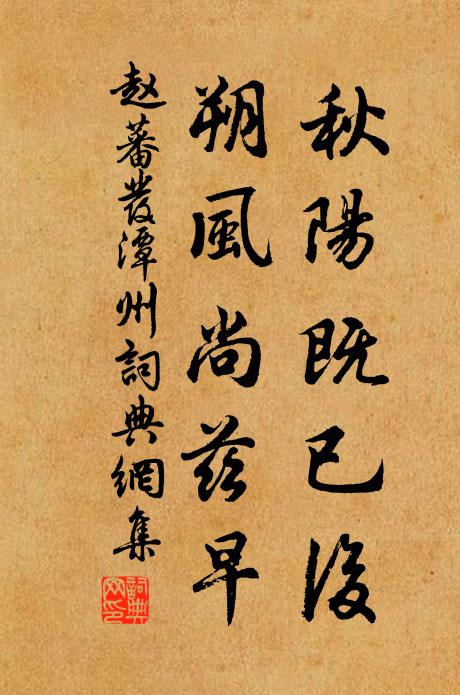 秋陽既已後
朔風尚茲早
赵蕃發潭州詞典網集
詞典
网印